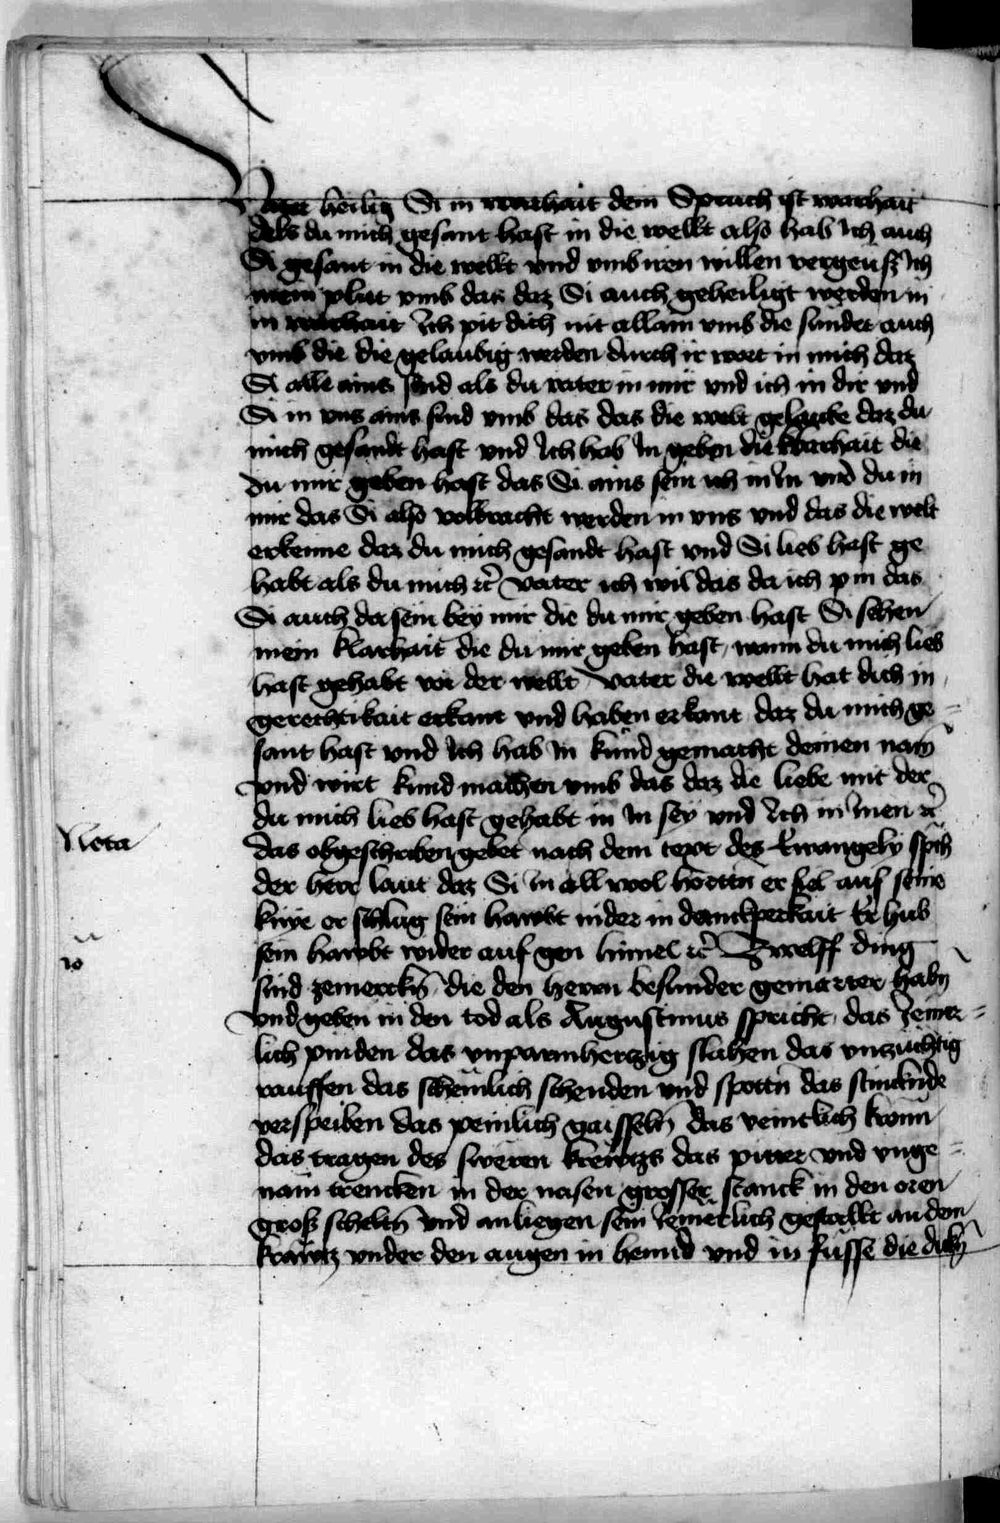 Vater heilig Si in warhait dein Spruch ist warhait
Als du mich gesant hast in die wellt also hab Ich auch
Si gesant in die wellt vnd vmb iren willen vergeusz Ich
mein plut vmb das daz Si auch geheiligt werden in
in warhait Ich pit dich nit allain vmb die sunder auch
vmb die die gelaubig werden durch ir wort in mich daz
Si alle ains sind als du vater in mir vnd ich in dir vnd
Si in vns ains sind vmb das das die welt gelaube daz du
mich gesandt hast vnd Ich hab In geben die klarhait die
du mir geben hast das Si ains sein ich in In vnd du in
mir das Si also volbracht werden in vns vnd das die welt
erkenne daz du mich gesandt hast vnd Si lieb hast ge
habt als du mich etc̃ vater ich wil das da ich pin das
Si auch da sein bey mir die du mir geben hast Si sehen
mein klarhait die du mir geben hast, wann du mich lieb
hast gehabt vor der wellt Vater die wellt hat dich in
gerechtikait erkant vnd haben erkant daz du mich ge=
sant hast vnd Ich hab In kund gemacht deinen nam̃
vnd wirt kund machen vmb das daz die liebe mit der
du mich lieb hast gehabt in In sey vnd Ich in Inen etc̃
Nota
das obgeschriben gebet nach dem text des Ewangely sp̃ch
der herr laut daz Si In all wol horttn̄ er fiel auf seine
knye er schlug sein hawbt nider in danckperkait Er hub
sein hawbt wider auf gen himel etc̃ Zwelff ding
sind zemerckn̄ die den herrn besunder gemarter habn̄
vnd geben in den tod als Augustinus spricht, das Iemer=
lich pinden das vnparmhertzig slahen das vnzuchtig
rauffen das schemlich schenden vnd spottn̄ das stinckn̄de
verspeiben das peinlich gaisseln̄ das veintlich kronn̄
das tragen des sweren krewtzs das pitter vnd vnge=
nam trencken in der nasen grosser stanck in den oren
groß scheltn̄ vnd anliegen sein Iemerlich gestallt an dem
krawtz vnder den augen in hennd vnd in füsse die